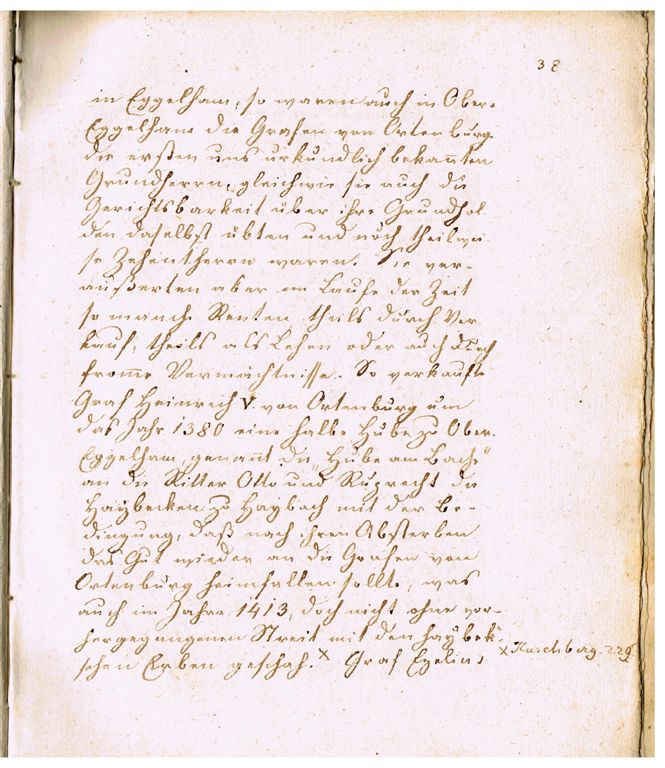 38
in Eggelham, so waren auch in Ober-
Eggelham die Grafen von Ortenburg
die ersten uns urkundlich bekannten
Grundherrn, gleichwie sie auch die
Gerichtsbarkeit über ihre Grundhol
den daselbst übten und noch theilwei
se Zehentherrn waren. Sie ver-
äußerten aber im Laufe der Zeit
so manche Renten theils durch Ver
kauf, theils als Lehen oder auch durch
fromme Vermächtnisse. So verkaufte
Graf Heinrich V. von Ortenburg um
das Jahr 1380 eine halbe Hube zu Ober-
Eggelham, genannt die „Hube am Bache"
an die Ritter Otto und Ruprecht die
Haybecken zu Haybach mit der Be-
dingung, daß nach ihren Absterben
das Gut wieder an die Grafen von
Ortenburg heimfallen sollte, was
auch im Jahre 1413, doch nicht ohne vor-
hergegangenen Streit mit den Haybek-
schen Erben geschah. x Graf Ezelin
x Huschberg. 229